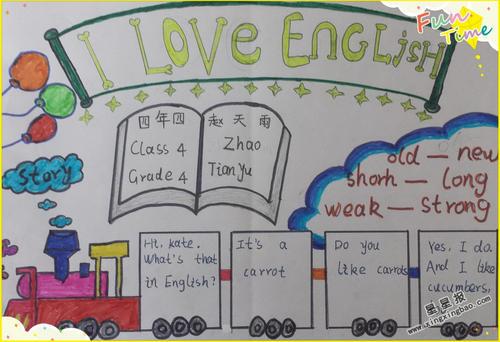 Fun
Time
I LOVE ENGLISH
四年四
Class 4
Grade 4
赵天雨
Zhao
TianYu
Story
old — new
shorh — long
weak — strong
Hi, kate.
What's that
in English?
It's a
carrot
Do you
like carrots
Yes, I do.
And I like
cucumbers.
星星报
www.xingxingbao.com